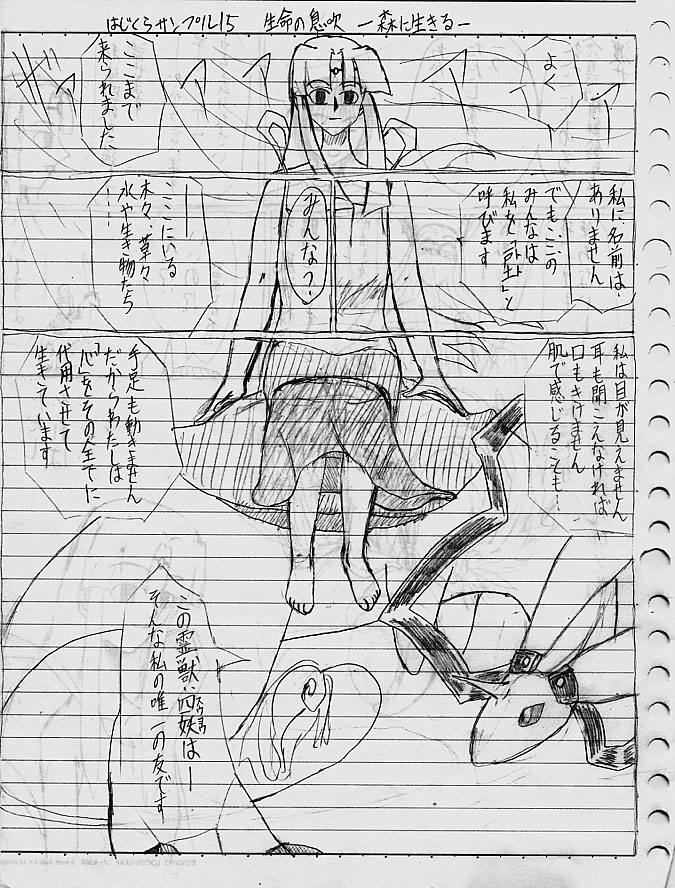 はじくらサンプル15　生命の息吹　ー森に生きるー
よく
ここまで
来られました
私に名前は
ありません
でもここの
みんなは
私を
呼びます
みんな？
ここにいる
木々、草々
水や生き物たち
私は目が見えません
耳も聞こえなければ
口もきけません
肌で感じることも…
手足も動きません
だからわたしは
「心」をその全てに
代用させて
生きています
この霊獣、四妖はー
そんな私の唯一の友です